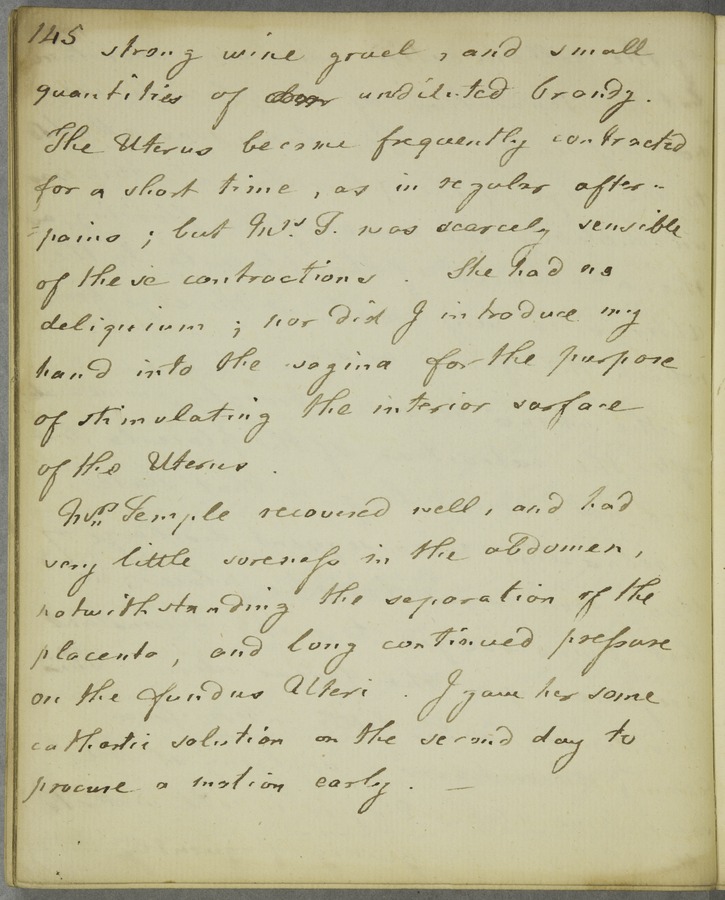 145
strong wine gruel, and small
quantities of undiluted brandy.
The Uterus became frequently contracted
for a short time, as in regular after-
=pains; but Mrs. T. was scarcely sensible
of these contractions. She had no
deliquium; nor did I introduce my
hand into the vagina for the purpose
of stimulating the interior surface
of the Uterus.
Mrs. Temple recovered well, and had
very little soreness in the abdomen,
notwithstanding the separation of the
placenta, and long continued pressure
on the fundus Uteri. I gave her some
cathartic solution on the second day to
procure a motion early. —